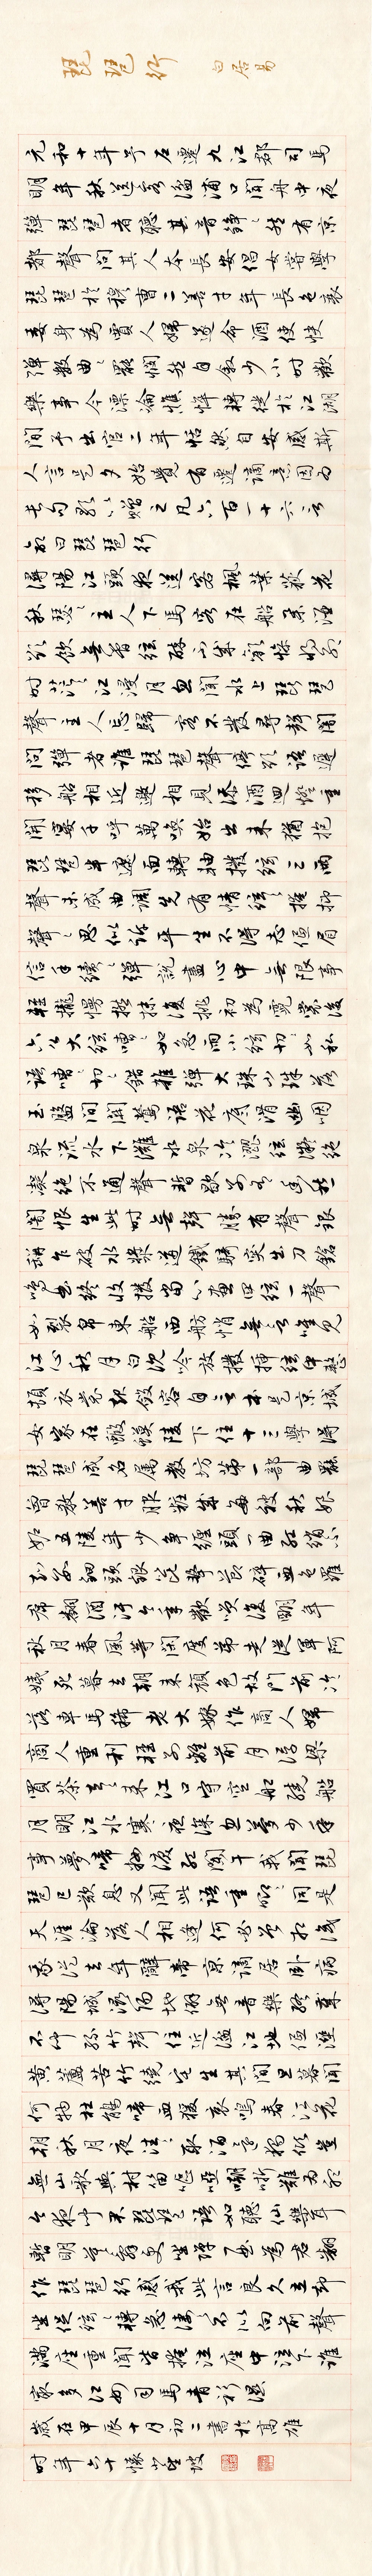 琵琶行 白居易
元和十年予左遷九江郡司馬
明年秋送客湓浦口聞舟中夜
彈琵琶者聽其音錚〻然有京
都聲問其人本長安倡女嘗學
琵琶於穆曹二善才年長色衰
委身為賈人婦遂命酒使快
彈數曲〻罷憫然自敘少小時歡
樂事今漂淪憔悴轉徙於江湖
間予出官二年恬然自安感斯
人言是夕始覺有遷謫意因為
長句歌以贈之凡六百一十六言
命曰琵琶行
潯陽江頭夜送客楓葉荻花
秋瑟〻主人下馬客在船舉酒
欲飲無管絃醉不成歡慘將別
時茫〻江浸月忽聞水上琵琶
聲主人忘歸客不發尋聲闇
問彈者誰琵琶聲停欲語遲
移船相近邀相見添酒迴燈重
開宴千呼萬喚始出來猶抱
琵琶半遮面轉軸撥絃三兩
聲未成曲調先有情絃〻掩抑
聲〻思似訴平生不得志低眉
信手續〻彈說盡心中無限事
輕攏慢撚抹復挑初為霓裳後
六幺大絃嘈〻如急雨小絃切〻如私
語嘈〻切〻錯雜彈大珠小珠落
玉盤間關鶯語花底滑幽咽
泉流水下灘水泉冷澀絃凝絕
凝絕不通聲暫歇別有幽愁
闇恨生此時無聲勝有聲銀
缾乍破水漿迸鐵騎突出刀鎗
鳴曲終收撥當心畫四絃一聲
如裂帛東船西舫悄無言唯見
江心秋月白沈吟放撥插絃中整
頓衣裳起斂容自言本是京城
女家在蝦蟆陵下住十三學得
琵琶成名屬教坊第一部曲罷
曾教善才服妝成每被秋娘
妒五陵年少爭纏頭一曲紅綃不
知數鈿頭銀篦擊節碎血色羅
裙翻酒汙今年歡笑復明年
秋月春風等閑度弟走從軍阿
姨死暮去朝來顏色故門前冷
落車馬稀老大嫁作商人婦
商人重利輕別離前月浮梁
買茶去〻來江口守空船繞船
月明江水寒夜深忽夢少年
事夢啼妝淚紅闌干我聞琵
琶已歎息又聞此語重唧〻同是
天涯淪落人相逢何必曾相識
我從去年辭帝京謫居臥病
潯陽城潯陽地僻無音樂終歲
不聞絲竹聲住近湓江地低濕
黃蘆苦竹繞宅生其間旦暮聞
何物杜鵑啼血猿哀鳴春江花
朝秋月夜往〻取酒還獨傾豈
無山歌與村笛嘔啞嘲哳難為聽
今夜聞君琵琶語如聽仙樂耳
暫明莫辭更坐彈一曲為君翻
作琵琶行感我此言良久立卻
坐促絃〻轉急淒〻不似向前聲
滿座重聞皆掩泣座中泣下誰
最多江州司馬青衫濕
歲在甲辰十月初二書於高雄
時年六十